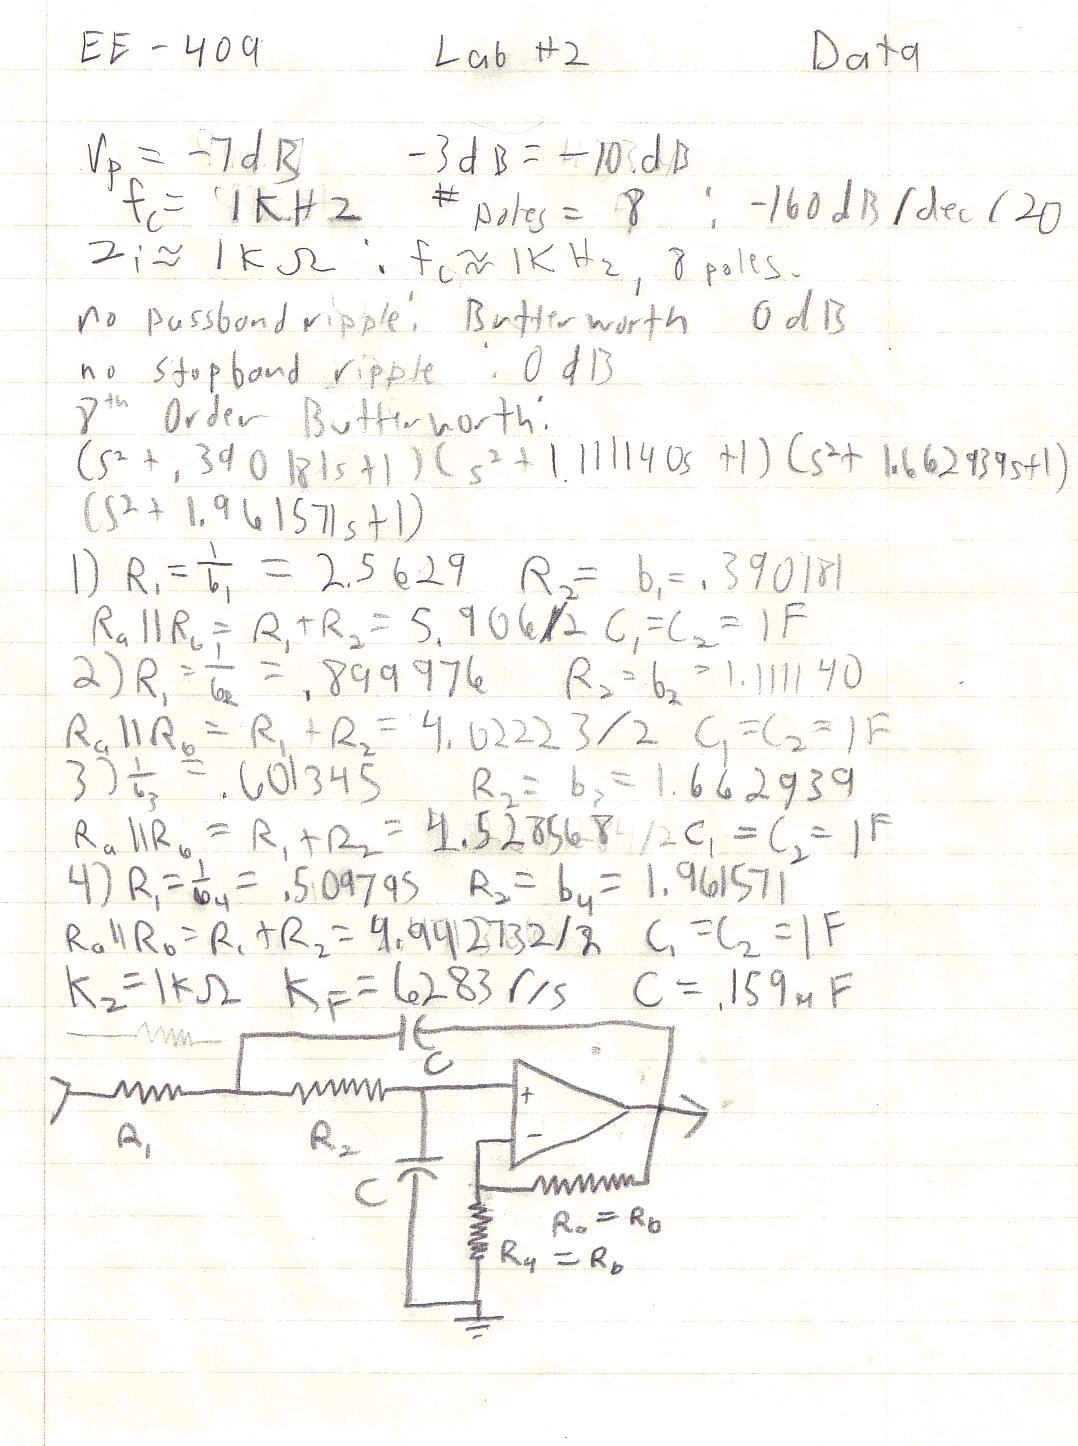 EE - 409 Lab #2 Data
Vp = -7dB -3dB = -10dB
fc = 1KHz # poles = 8 ∴ -160dB/dec (20
Zi ≈ 1KΩ ∴ fc ≈ 1KHz, 8 poles.
no passband ripple ∴ Butterworth 0dB
no stopband ripple ∴ 0dB
8th Order Butterworth:
(s²+.390181s+1)(s²+1.111140s+1)(s²+1.662939s+1)
(s²+1.961571s+1)
1) R₁ = 1/b₁ = 2.5629 R₂ = b₁ = .390181
Ra||Rb = R₁+R₂ = 5.906/2 C₁=C₂=1F
2) R₁ = 1/b₂ = .899976 R₂ = b₂ = 1.111140
Ra||Rb = R₁+R₂ = 4.02223/2 C₁=C₂=1F
3) 1/b₃ = .601345 R₂ = b₃ = 1.662939
Ra||Rb = R₁+R₂ = 4.528568/2 C₁=C₂=1F
4) R₁ = 1/b₄ = .509795 R₂ = b₄ = 1.961571
Ra||Rb = R₁+R₂ = 4.9412732/2 C₁=C₂=1F
Kz=1KΩ KF=6283 r/s C=.159μF
C
+
R₁ R₂
-
C
Ra = Rb
Ra = Rb